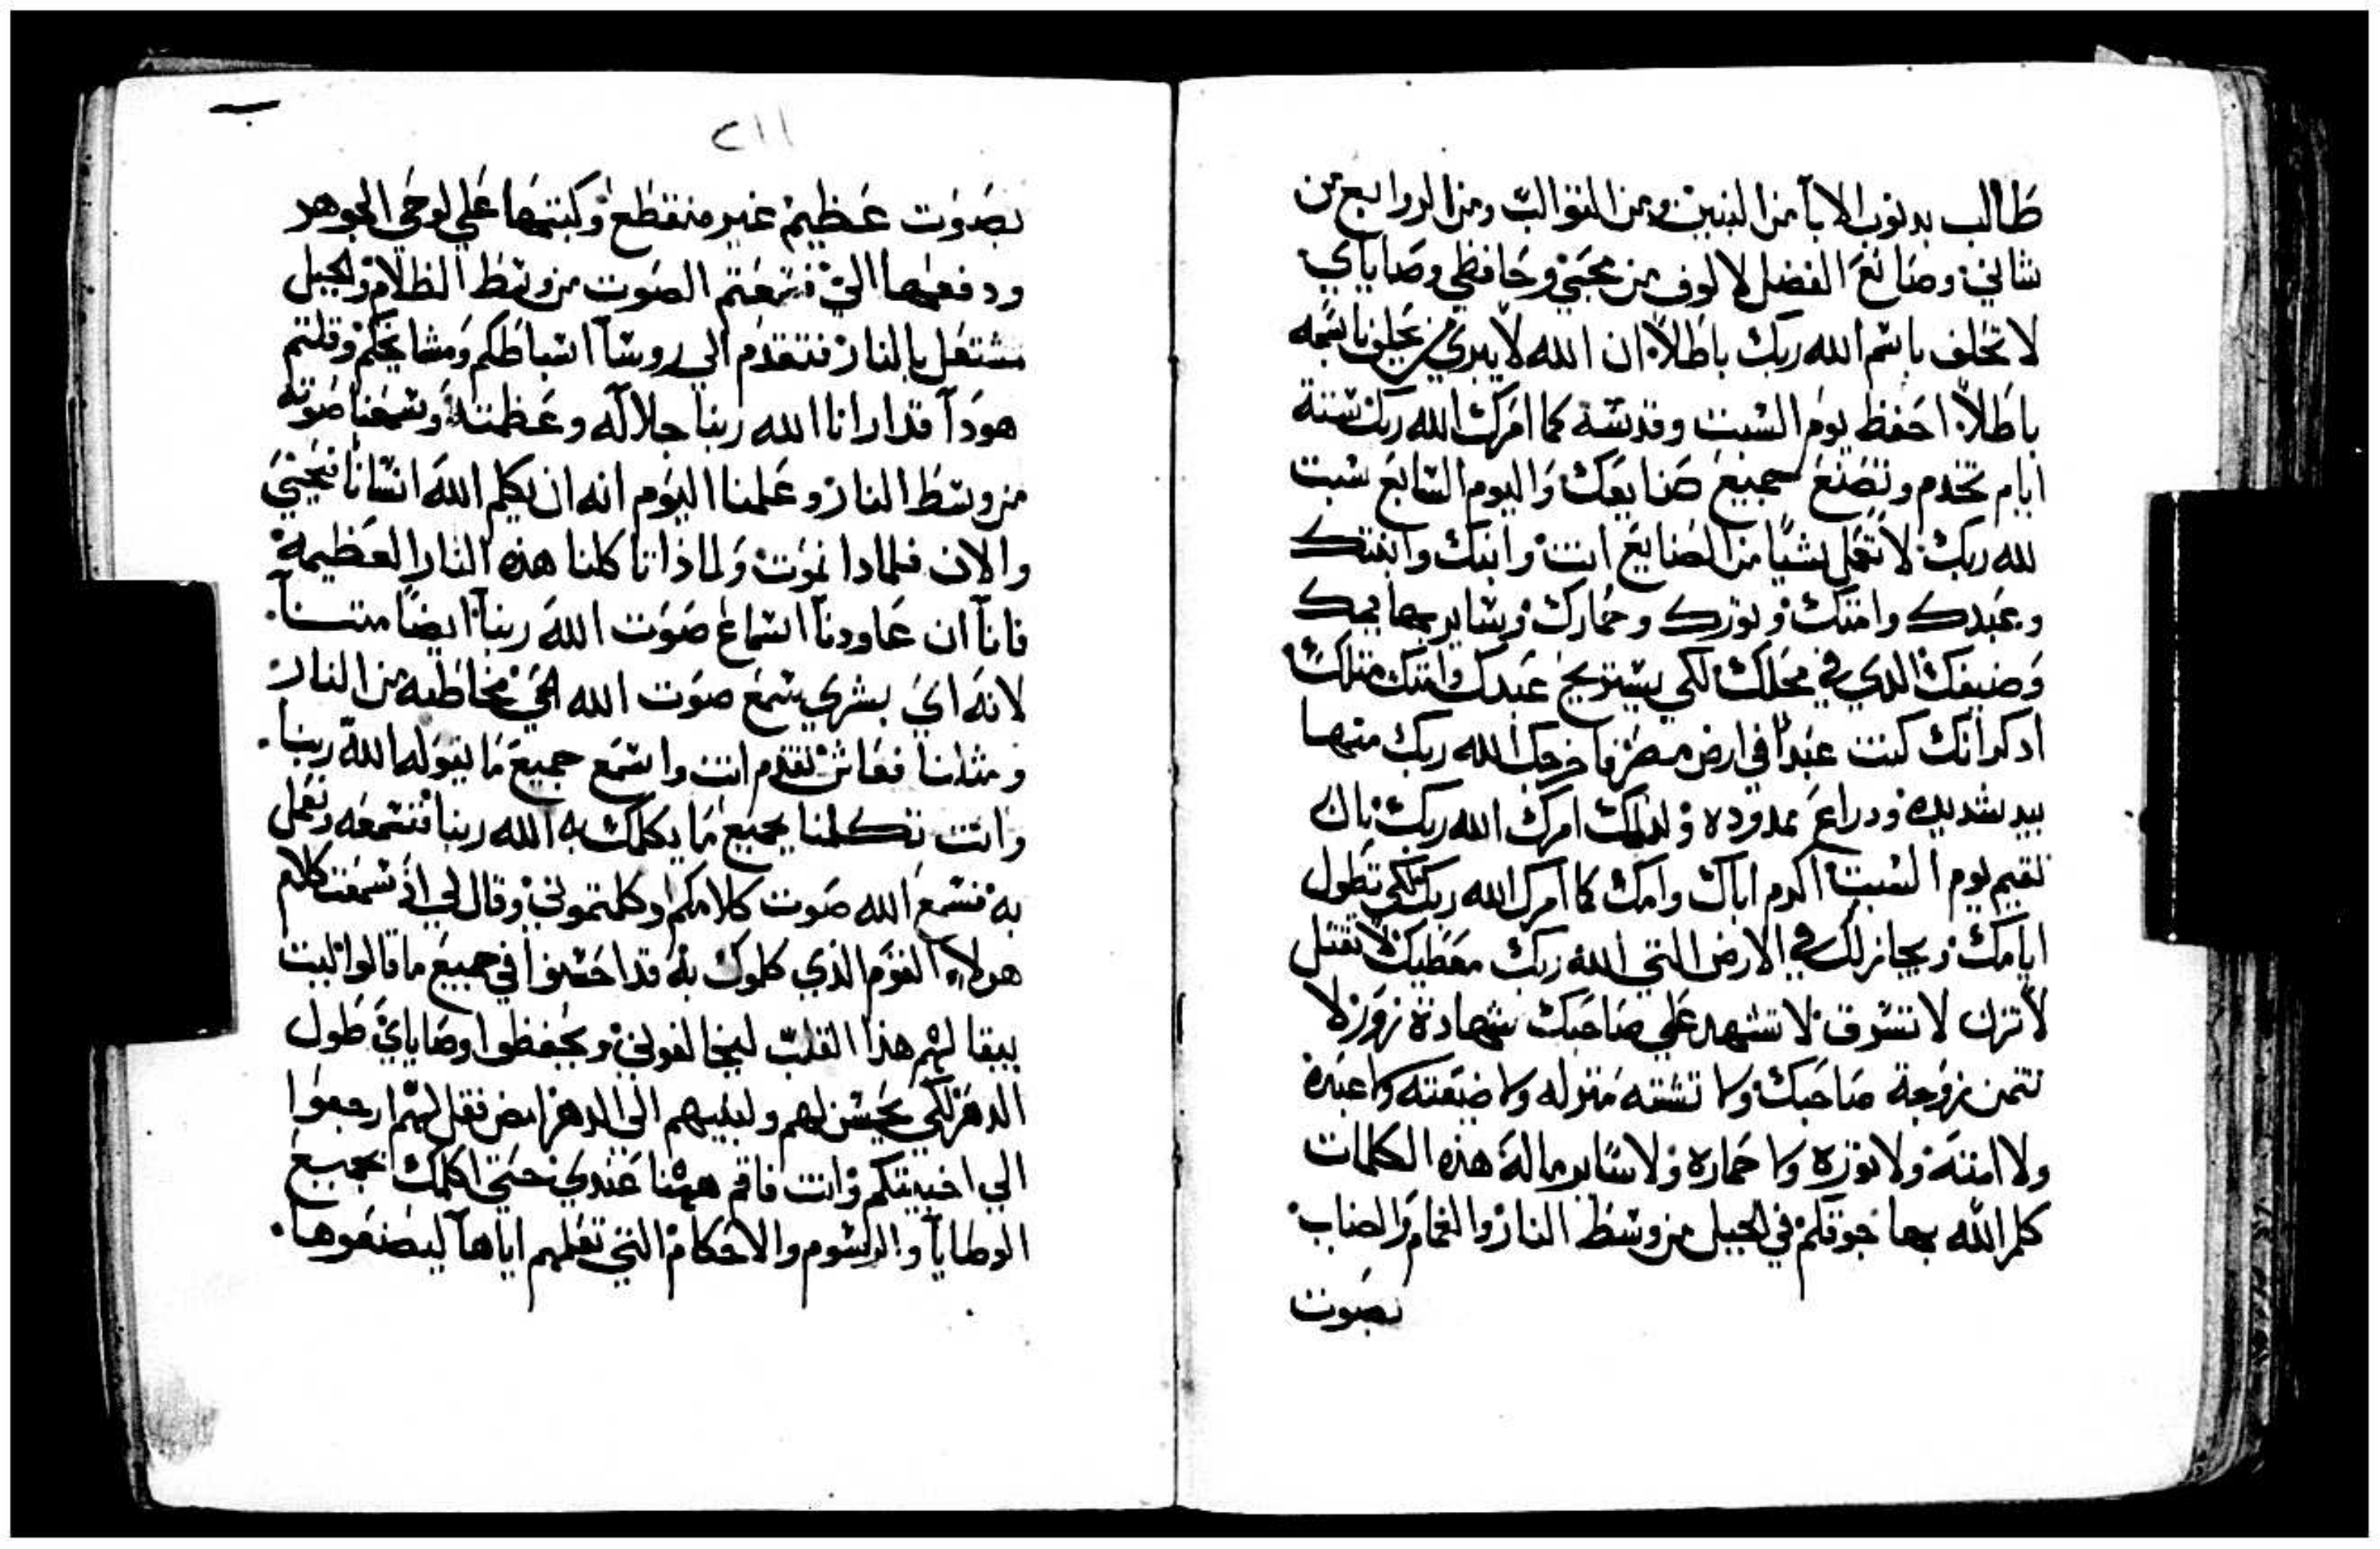 طالب بدنوب الابآ من البنين ومن التوالت ومن الروابع من
شاني وصانع الفضل لالوف من محبي وحافظي وصاياي
لا تحلف باسم الله ربك باطلاً ان الله لا يبري من يحلف باسمه
باطلاً احفظ يوم السبت وقدسه كما امرك الله ربك ستة
ايام تخدم وتصنع جميع صنايعك واليوم السابع سبت
لله ربك لا تعمل شيًا من الصنايع انت وابنك وابنتك
وعبدك وامتك وتورك وحمارك وساير بهايمك
وضيفك الدي في محلك لكي يستريح عبدك وامتك متلك
ادكر انك كنت عبداً في ارض مصر فاخرجك الله ربك منها
بيد شديده ودراع ممدوده ولدلك امرك الله ربك بان
تقيم يوم السبت اكرم اباك وامك كما امرك الله ربك لكي تطول
ايامك ويجاز لك في الارض التي الله ربك معطيك لا تقتل
لا تزن لا تسرق لا تشهد علي صاحبك شهادة زور لا
تتمن زوجة صاحبك ولا تشته منزله ولا ضيعته ولا عبده
ولا امته ولا توره ولا حماره ولا ساير ماله هذه الكلمات
كلم الله بها جوقكم في الجبل من وسط النار والغمام والضباب
بصوت
ب
٢١١
بصوت عظيم غير منقطع وكتبها علي لوحي الجوهر
ودفعها الي فسمعتم الصوت من وسط الظلام والجبل
مشتعل بالنار فتقدم الي روسآ اسباطكم ومشايخكم وقلتم
هودآ قد ارانا الله ربنا جلاله وعظمته وسمعنا صوته
من وسط النار وعلمنا اليوم انه ان يكلم الله انسانا فيحيي
والان فلمادا نموت ولماذا تاكلنا هذه النار العظيمة
فانآ ان عاودنآ استماع صوت الله ربنآ ايضاً متنآ
لانه اي بشري سمع صوت الله الحي مخاطبه من النار
ومثلنا فعاش تقدم انت واسمع جميع ما يقوله الله ربنا
وانت تكلمنا بجميع ما يكلمك به الله ربنا فنسمعه ونعمل
به فسمع الله صوت كلامكم اذ كلمتموني وقال لي اني سمعت كلام
هولاء القوم الذي كلموك به قد احسنوا في جميع ما قالوا ليت
يبقا لهم هذا القلب ليخافوني ويحفظوا وصاياي طول
الدهر لكي يحسن لهم ولبنيهم الى الدهر امض فقل لهم ارجعوا
الي اخبيتكم وانت فاقم ههنا عندي حتي اكلمك بجميع
الوصايآ والرسوم والاحكام التي تعلمهم اياهآ ليصنعوها